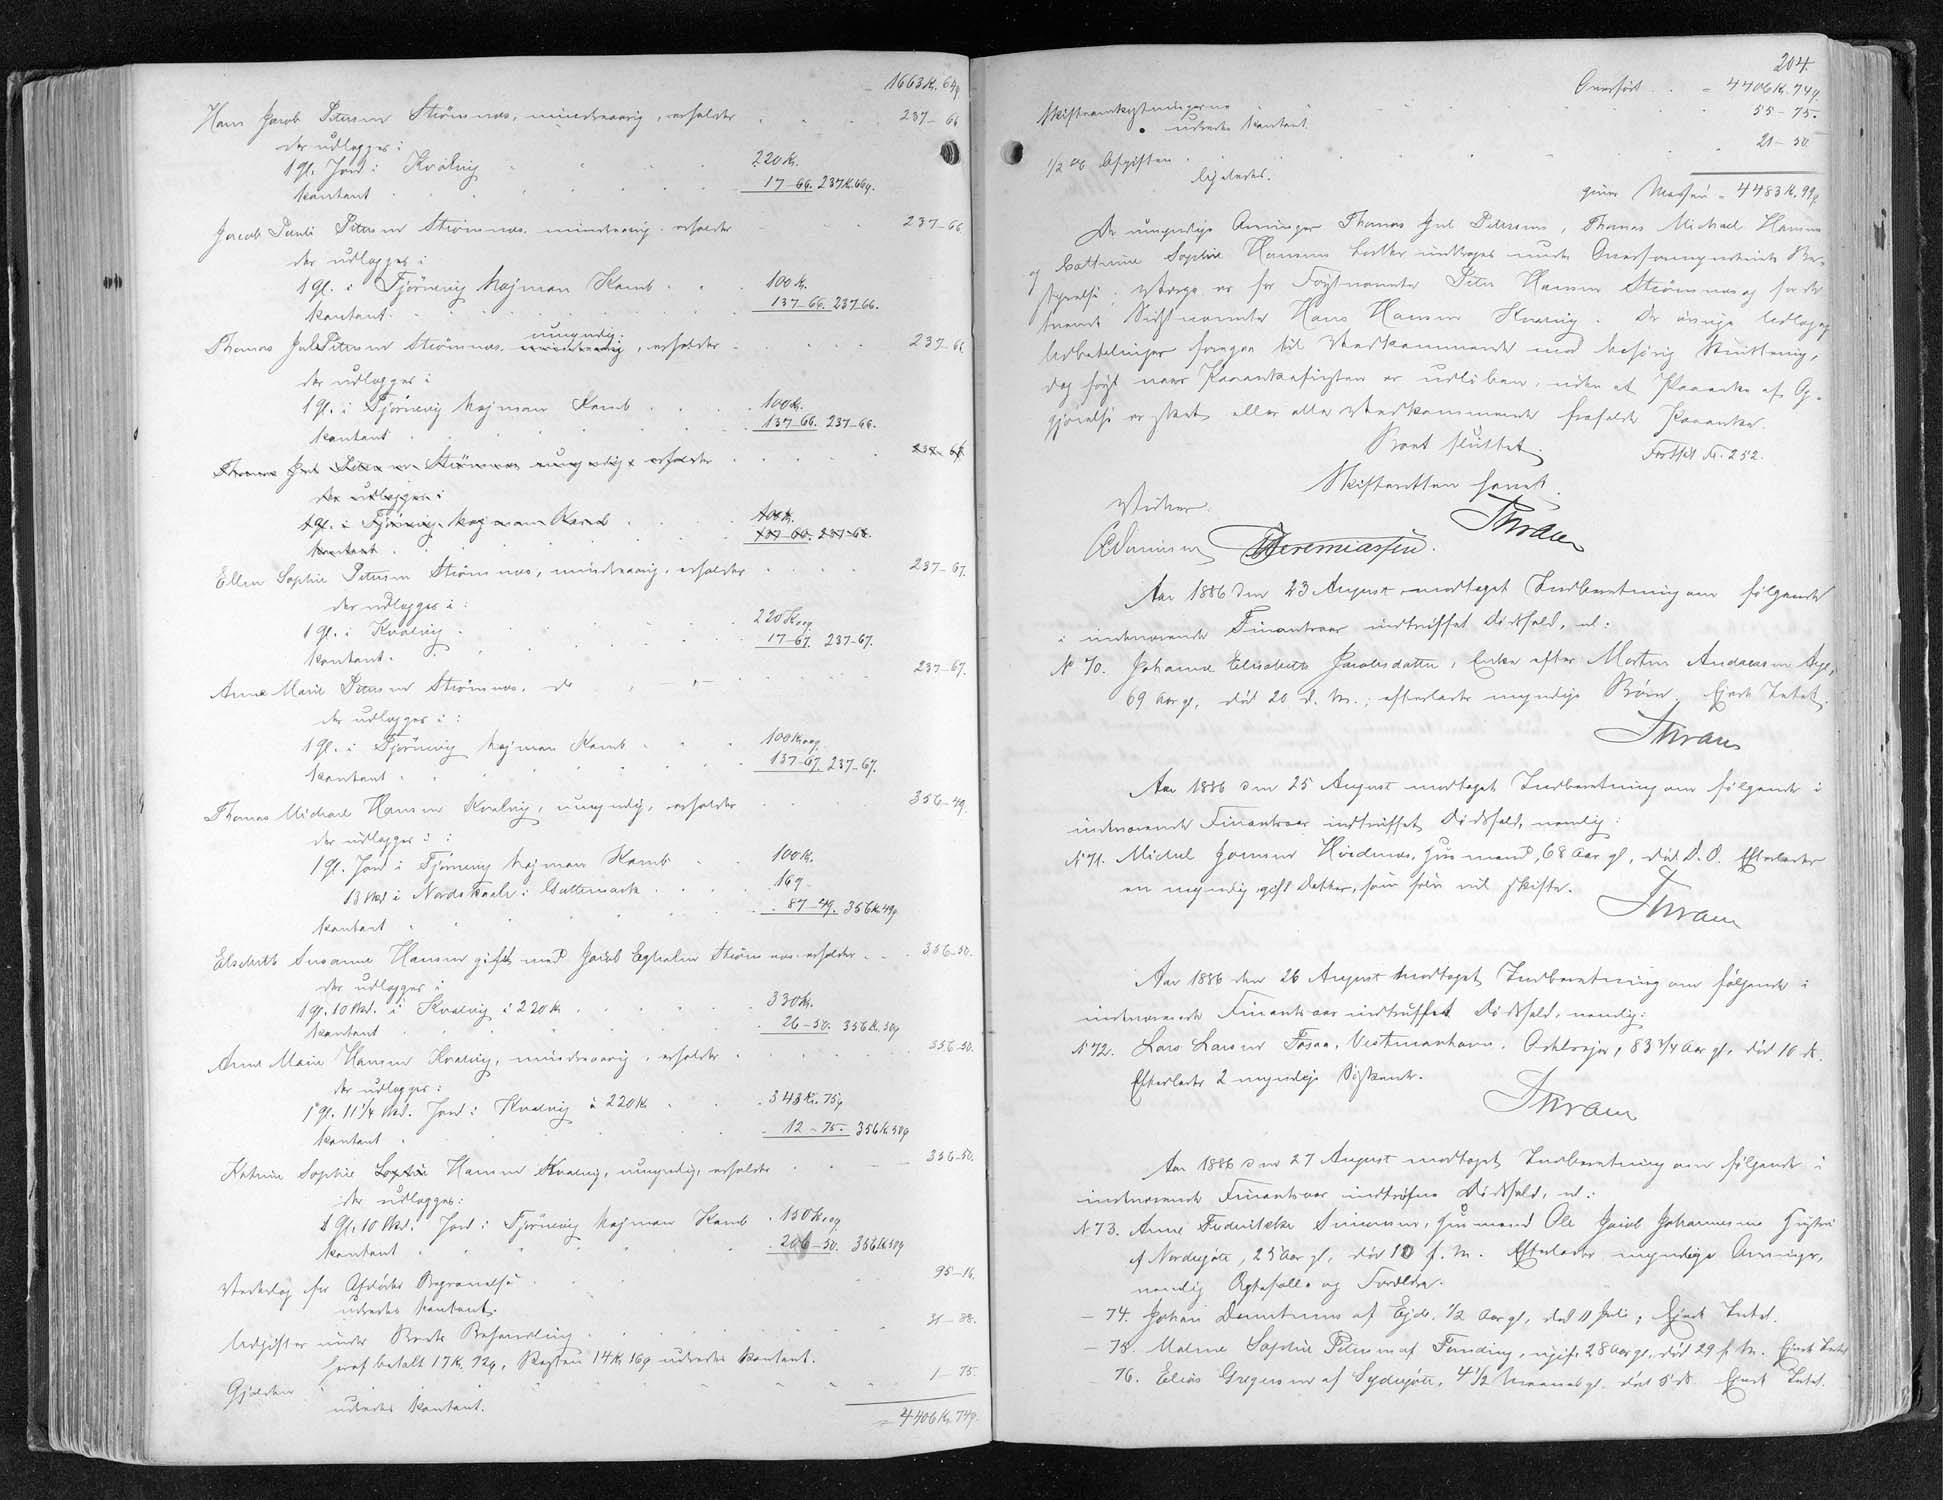 1663 K. 64 ø.
Hans Jacob Petersen Strömnæs, mindreaarig, erholder . . . 237 – 66
der udlægges:
1 gl. Jord i Kvalvig 220 K.
kontant 17 – 66. 237 K. 66 ø.
Jacob Pauli Petersen Strömnæs, mindreaarig, erholder 237 – 66
der udlægges i
1 gl. i Tjörnevig Højman Kamb . . 100 K.
kontant. 137 – 66. 237 66.
umyndig.
Thomas Jul Petersen Strömnæs, mindreaarig, erholder 237 – 66
der udlægges i
1 gl. i Tjörnevig Højman Kamb . . 100 K.
kontant 137 – 66. 237 – 66.
Thomas Juul Petersen Strömnæs umyndig, erholder 237 – 66
der udlægges i
1 gl. i Tjörnevig Højman Kamb 100 K.
kontant 137 – 66. 237 – 66.
Ellen Sophie Petersen Strömnæs, mindreaarig, erholder 237 – 67.
der udlægges i:
1 gl. i Kvalvig 220 K og
kontant. 17 – 67. 237 – 67.
Anne Marie Petersen Strömnæs, do 237 – 67.
der udlægges i:
1 gl. i Tjörnevig Højman Kamb 100 K og
kontant 137 – 67. 237 – 67.
Thomas Michael Hansen Kvalvig, umyndig, erholder 356 – 49.
der udlægges i:
1 gl. Jord i Tjörnevig Højman Kamb 100 K.
13 Skd i Nordskaale: 169
kontant 87 – 49. 356 K. 49 ø
Elsebeth Susanne Hansen gift med Jacob Egholm Strömnæs erholder . . 356 – 50.
der udlægges i
1 gl. 10 Skd. i Kvalvig à 220 K 330 K.
kontant 26 – 50. 356 K. 50 ø
Anne Marie Hansen Kvalvig, mindreaarig, erholder 356 – 50.
der udlægges:
1 gl. 11 1/4 Skd. Jord i Kvalvig à 220 K 343 K. 75 ø
kontant 12 – 75. 356 K 50 ø
Katrine Sophie Hansen Kvalvig, umyndig, erholder 356 – 50.
der udlægges:
1 Gl. 10 Skd. Jord i Tjörnevig Højman Kamb 150 K og
kontant 206 – 50. 356 K 50 ø
Vederlag for Afdødes Begravelse 95 – 16.
udredes kontant.
Udgifter under Boets Behandling 31 – 88.
heraf betalt 17 K. 72 ø, Resten 14 K 16 ø udredes kontant.
Gjælden 1 – 75.
udredes kontant.
= 4406 Kr. 74 ø.
204.
Overført . . = 4406 K. 74 ø.
Skifteomkostningerne 55 – 75.
udredes kontant.
1/2 % Afgiften 21 – 50
ligeledes.
giver Massen = 4483 K. 99 ø
De umyndige Arvinger Thomas Juul Petersens, Thomas Michael Hansens
og Cathrine Sophie Hansens Lodder inddrages under Overformynderiets Be-
styrelse; Værge er for Førstnævnte Peter Hansen Strömnæs og for de
tvende Sidstnævnte Hans Hansen Kvalvig. De øvrige Udlæg og
Udbetalinger foregaa til Vedkommende mod behørig Kvittering,
dog først naar Paaankefristen er udløben, uden at Paaanke af Op-
gjørelsen er sket eller alle Vedkommende frafalde Paaanken.
Boet sluttet. Fortsat Fo. 252.
Skifteretten hævet.
Vidner. Thrane
Jeremiassen.
Aar 1886 den 23 August modtaget Indberetning om følgende
i indeværende Finantsaar indtruffet Dødsfald, nl:
No 70. Johanne Elisabeth Jacobsdatter, Enke efter Morten Andreasen
69 Aar gl, död 20 d. M.; efterlader myndige Börn. Ejede Intet.
Thrane
Aar 1886 den 25 August modtaget Indberetning om følgende i
indeværende Finantsaar indtruffet Dödsfald, nemlig:
No 71. Michel Joensen Hvidenæs, Huusmand, 68 Aar gl, död D. O. Efterlader
en myndig, gift Datter, som selv vil skifte.
Thrane
Aar 1886 den 26 August modtaget Indberetning om følgende i
indeværende Finantsaar indtruffet Dödsfald, nemlig:
No 72. Lars Larsen Fosaa, Vestmanhavn, 83 3/4 Aar gl, död 10 ds.
Efterlader 2 myndige Sødskende.
Thrane
Aar 1886 den 27 August modtaget Indberetning om følgende i
indeværende Finantsaar indtrufne Dödsfald, nl:
No 73. Anne Frederikke Simonsen, Huusmand Ole Jacob Johannesens Hustru
af Nordregøte, 25 Aar gl, död 10 f. M. Efterlader myndige Arvinger,
nemlig Ægtefælle og Forældre.
– 74. Johan af Ejde, 1/2 Aar gl, död 11 Juli, Ejede Intet.
– 75. Malene Sophie Petersen af Funding, ugift, 28 Aar gl, död 29 f. M. Ejede Intet
76. Elias Gregersen af Sydregøte, 4 1/2 Maaned gl. död 5 ds. Ejede Intet.